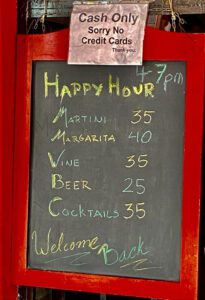 Cash Only
Sorry No
Credit Cards
Thank you
4-7pm
HAPPY HOUR
MARTINI 35
MARGARITA 40
VINE 35
BEER 25
COCKTAILS 35
Welcome Back